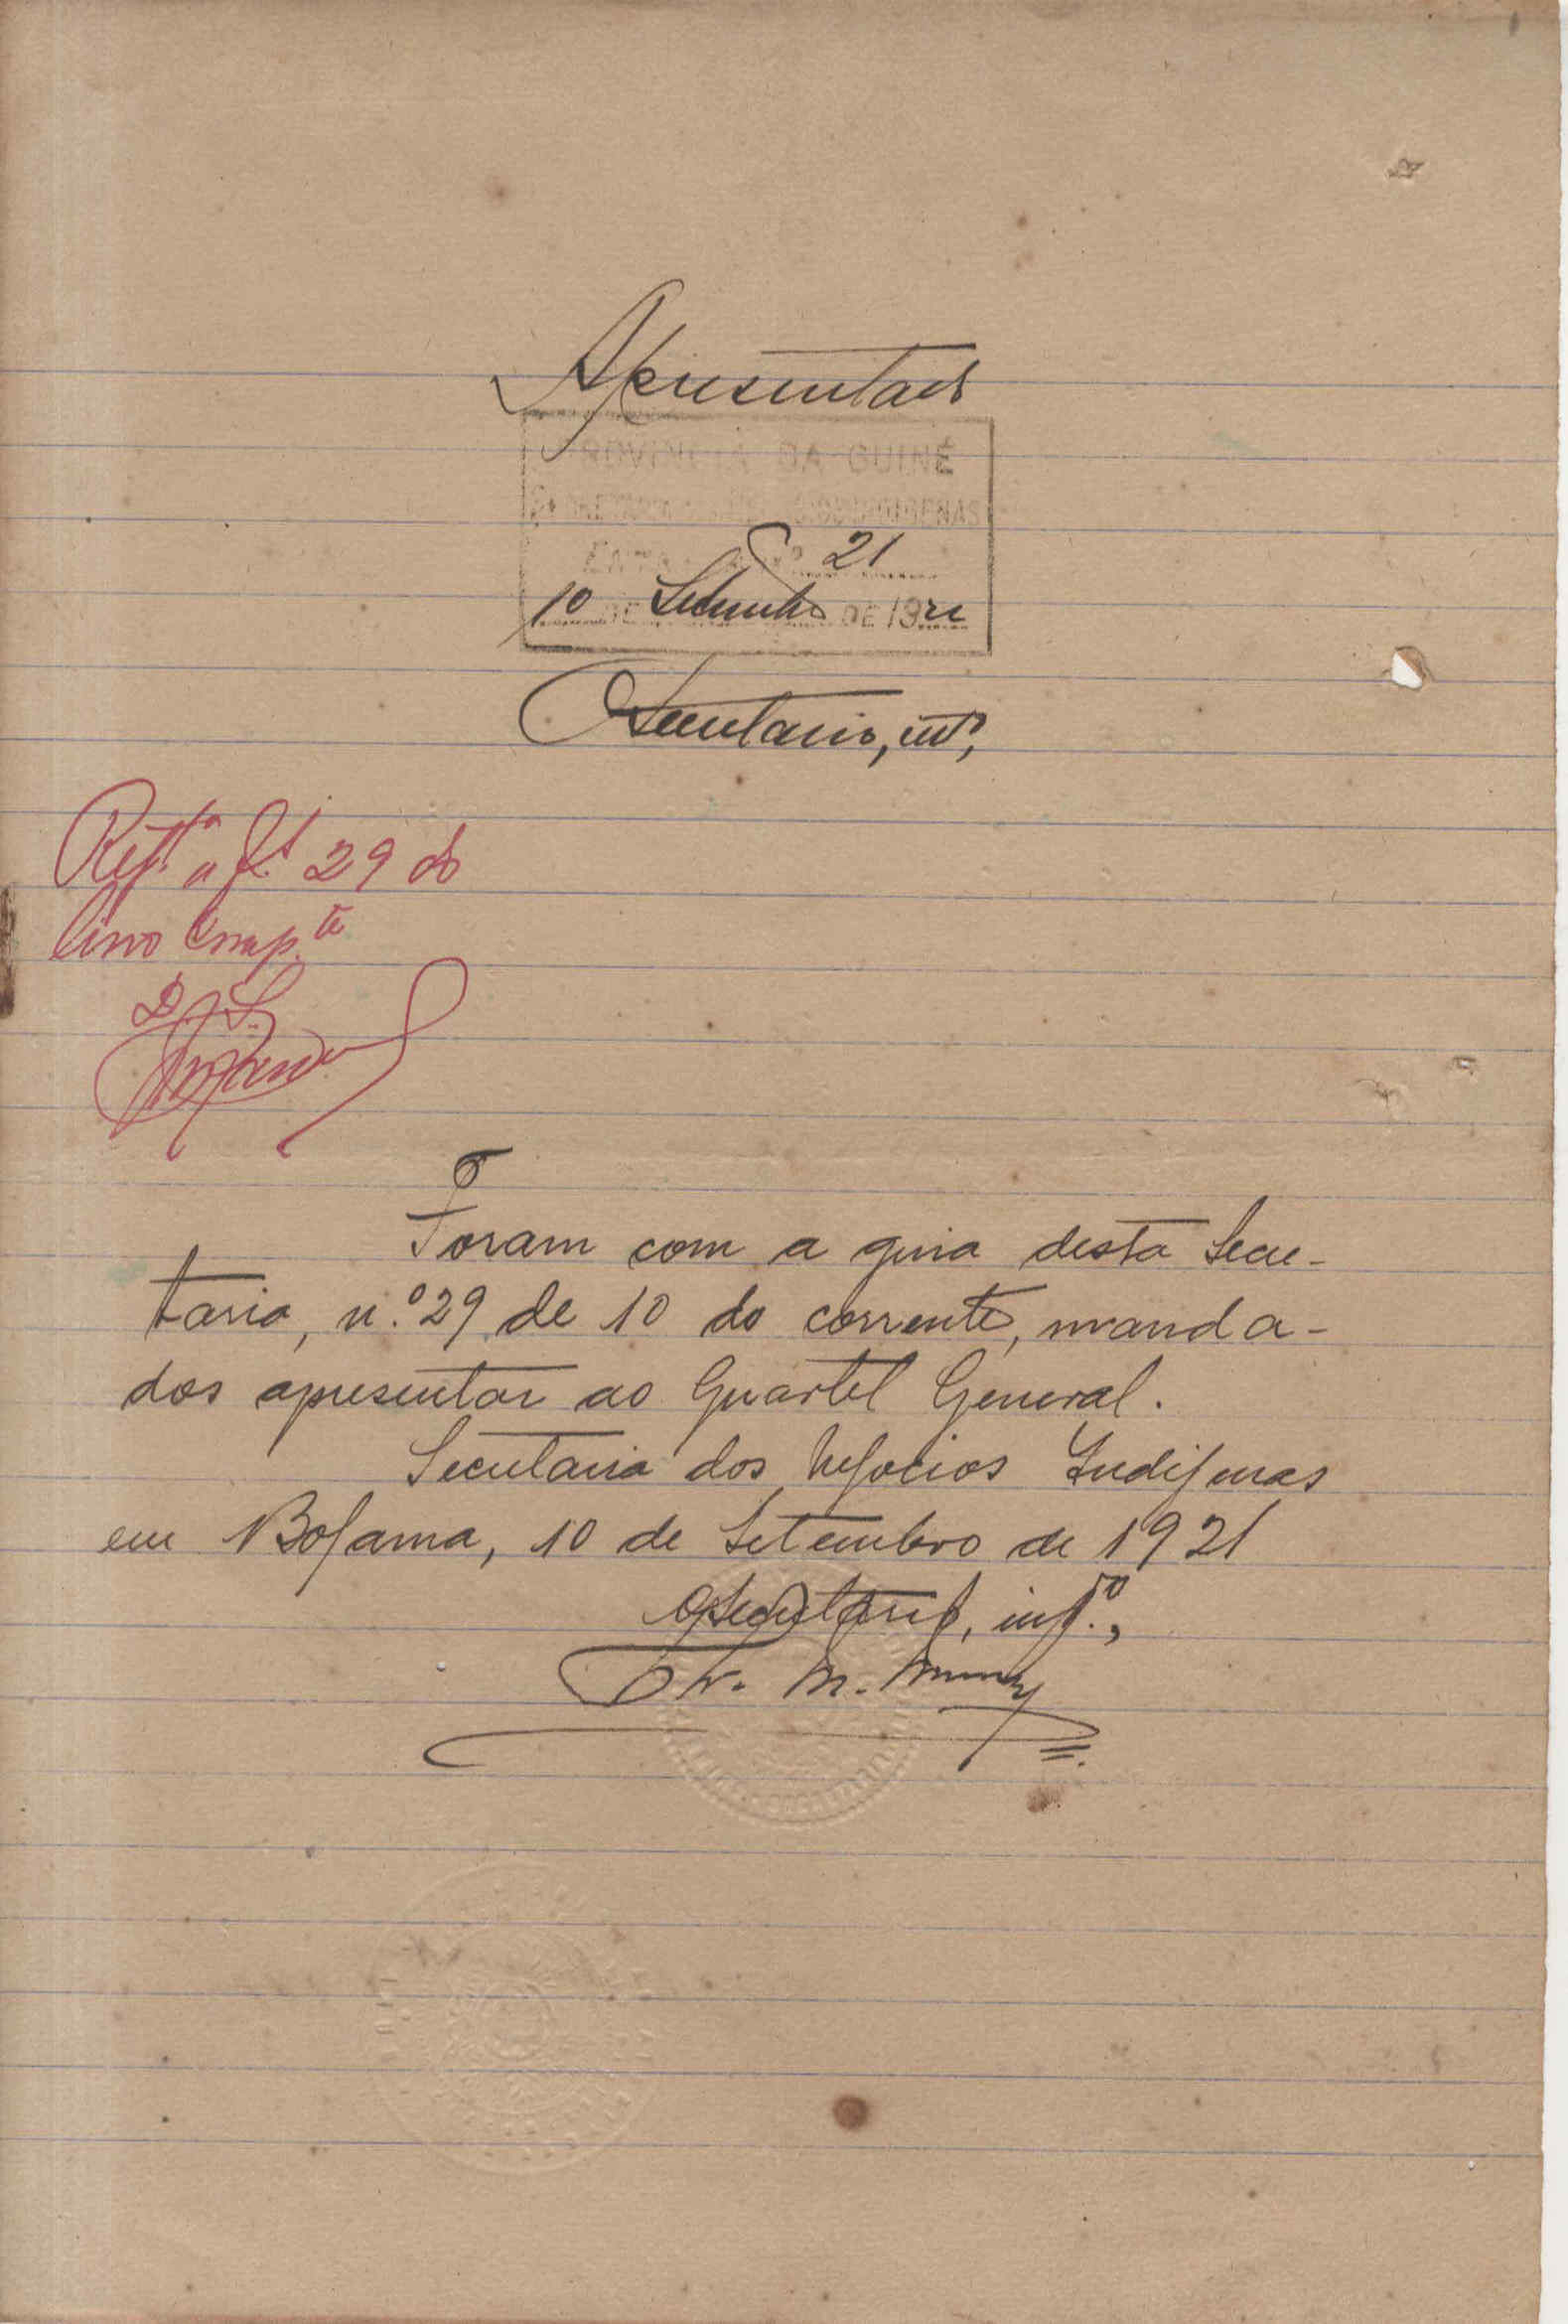 Apresentado
PROVINCIA DA GUINÉ
SECRETARIA DOS NEGOCIOS INDIGENAS
ENTRADA Nº 21
10 DE Setembro DE 1921
O Secretario, intº,
Regt.ª a fl. 29 do
Livro Comp.te
Foram com a guia desta Secre-
taria, n.º 29 de 10 do corrente, manda-
dos apresentar ao Quartel General.
Secretaria dos Negocios Indigenas
em Bolama, 10 de Setembro de 1921
O Secretario, int.º,